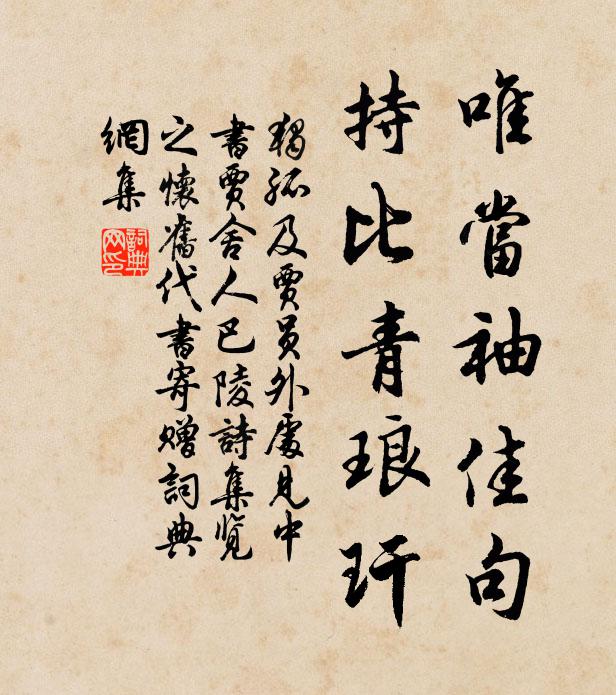 唯當袖佳句
持比青琅玕
獨孤及賈員外處見中
書賈舍人巴陵詩集览
之懷舊代書寄贈詞典
網集
詞典
网印